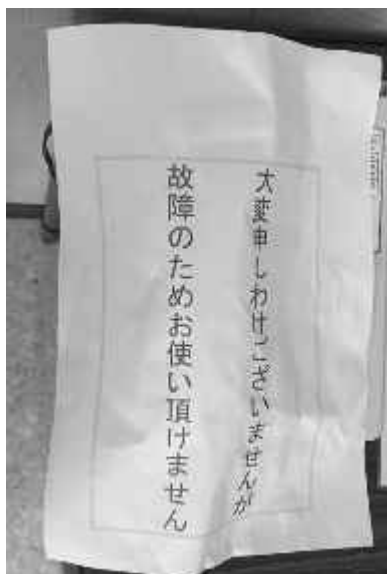 大変申しわけございませんが
故障のためお使い頂けません